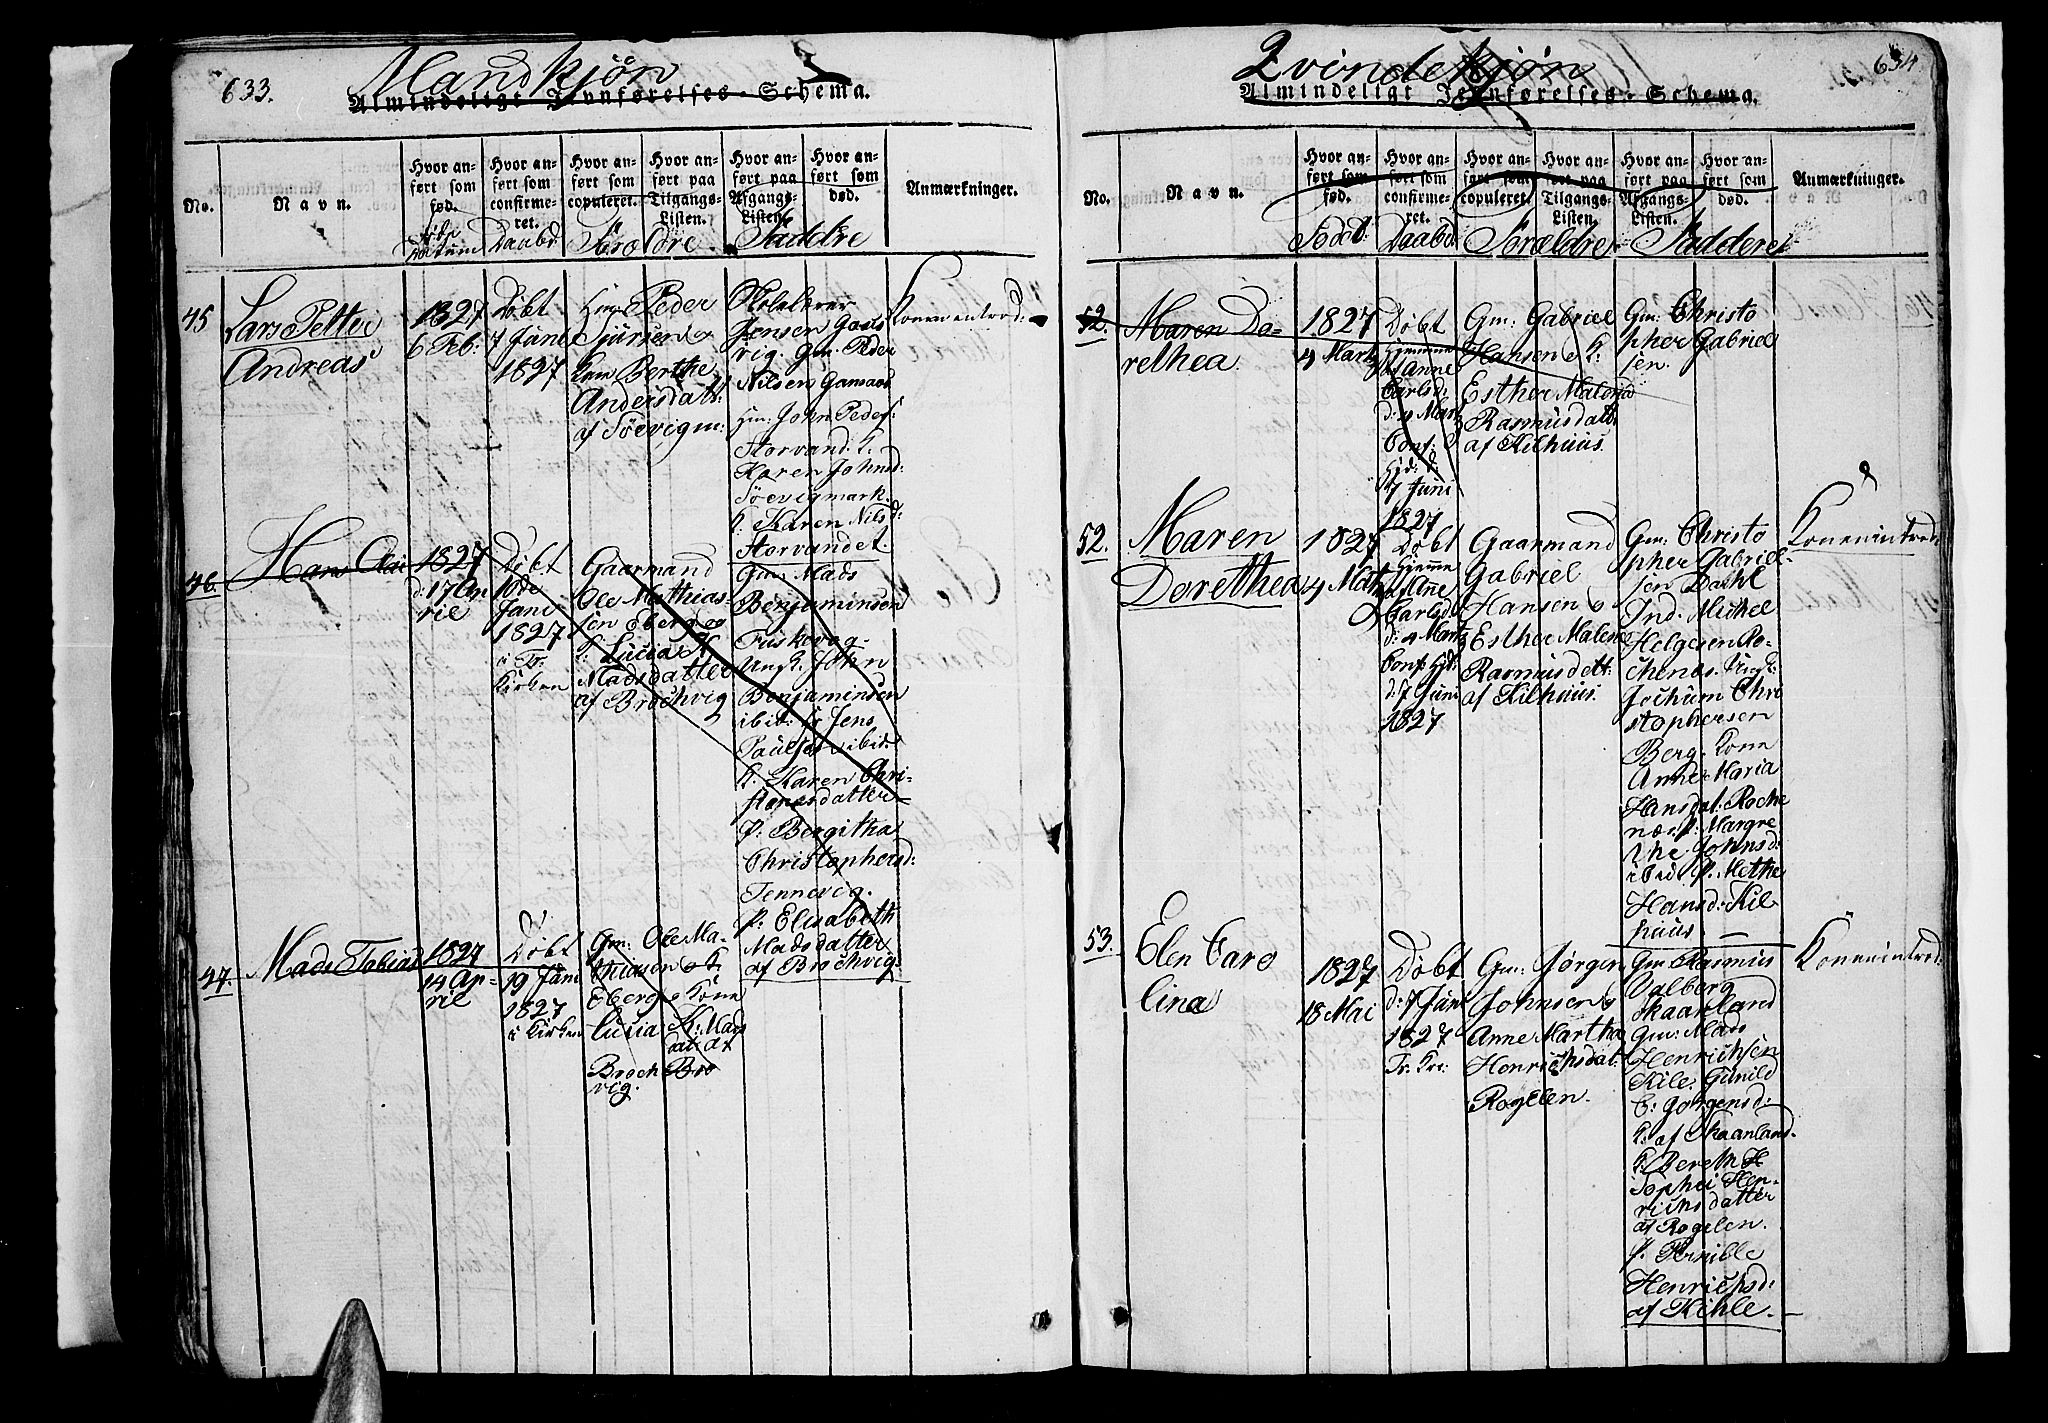 633.
Mandkjön
Almindeligt Jevnførelses-Schema.
No.
Navn.
Hvor an-
ført som
fød.
Hvor an-
ført som
confirme-
ret.
Hvor an-
ført som
copuleret.
Hvor an-
ført paa
Tilgangs-
Listen.
Hvor an-
ført paa
Afgangs-
Listen.
Hvor an-
ført som
død.
Anmærkninger.
Datum
Daabd
Foroldre
Faddre
45
Lars Petter
Andreas
1827
6 Feb:
Döbt
7 Juni
1827
Peder
Sjursen o
Berthe
Andersdatr:
af Söevigm:
Jensen Gaas
vig. Gm: Peder
Nilsen Gamaas
Hm: John Peders:
Storvand. K:
Karen Johnsd:
Söevigmark.
K: Karen Nilsd:
Storvandet.
Konenintrod:
46.
Hans Olai
1827
d: 17 Ap
rie
Döbt
10de
Juni
1827
i Tr:
Kirken
Gaarmand
Ole Mathias
sen Eberg og
K: Lucia H
Madsdatter
af Brochvig
Gm: Mads
Benjaminsen
Fuskevog.
Ungk. John
Benjaminsen
ibid: Jens
Paulsen ibid.
K. Karen Chri-
stensdatter
P: Bergitha
Christophersd:
Tennevig.
P: Elisabeth
Madsdatter
af Brochvig.
47.
Mads Tobias
1827
14 Ap-
ril
Döbt
19 Juni
1827
i Kirken
Gm: Ole Ma-
thiasen o K:
Eberg o Kone
Lucia K: Mads
datr af
Broch Bro
vig.
634
Qvindekjön
Almindeligt Jevnførelses-Schema.
No.
Navn.
Hvor an-
ført som
fød.
Hvor an-
ført som
confirme-
ret.
Hvor an-
ført som
copuleret.
Hvor an-
ført paa
Tilgangs-
Listen.
Hvor an-
ført paa
Afgangs-
Listen.
Hvor an-
ført som
død.
Anmærkninger.
Född:
Daabd
Forældre
Faddere
52.
Maren Do-
rethea.
1827
4 Marti
Döbt
Hjemme
af Anne
Carlsd:
d: 4 Marti
Conf:
Hjd: d:
7 Juni
1827
Gm: Gabriel
Hansen o K:
Esther Malena
Rasmusdatr:
af Kilhuus.
Gm: Christo
pher Gabriel
sen.
52.
Maren
Dorethea
1827
4 Mart:
Döbt
Hjemme
af Anne
Carlsd:
d: 4 Marti
Conf: Hjd:
d: 7 Juni
1827
Gaarmand
Gabriel
Hansen o
Esther Malene
Rasmusdatr:
af Kilhuus.
Gm: Christo
pher Gabriel-
sen Dashl
Ind: Michel
Helgesen Ro-
chenes. Ungk:
Jochum Chri
stophersen
Berg. Kone
Anne Maria
Hansdat: Roche
næs. P: Margre
the Johnsd:
ibid P. Methe
Hansd: Kil
huus.
Konenintrod:
53.
Elen Caro
lina
1827
18 Mai
Döbt
d: 7 Juni
1827
Tr: Kir:
Gm: Jörgen
Johnsen o
Anne Martha
Henrichsdat:
Rogelen.
Gm: Rasmus
Valberg
Skaanland
Gm: Mads
Henrichsen
Kile. Gunild
C: Jörgensd:
K: af Skaanland.
K: Bereth H
Sophei Hen-
richsdatter
af Rogelen.
P: Pernille
Henrichsd:
af Kihle.
Konenintrod: